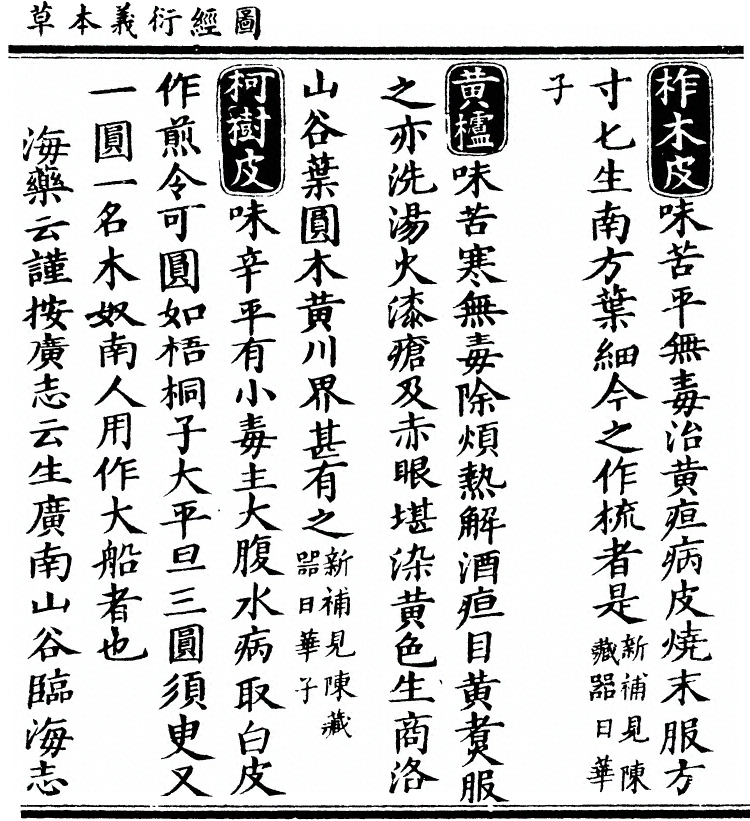 草本義衍經圖
柞木皮味苦平無毒治黄疸病皮燒末服方
寸匕生南方葉細今之作梳者是新補見陳藏器日華
子
黄櫨味苦寒無毒除煩熱解酒疸目黄煑服
之亦洗湯火漆瘡及赤眼堪染黄色生商洛
山谷葉圓木黄川界甚有之新補見陳藏器日華子
柯樹皮味辛平有小毒主大腹水病取白皮
作煎令可圓如梧桐子大平旦三圓須臾又
一圓一名木奴南人用作大船者也
海藥云謹按廣志云生廣南山谷臨海志